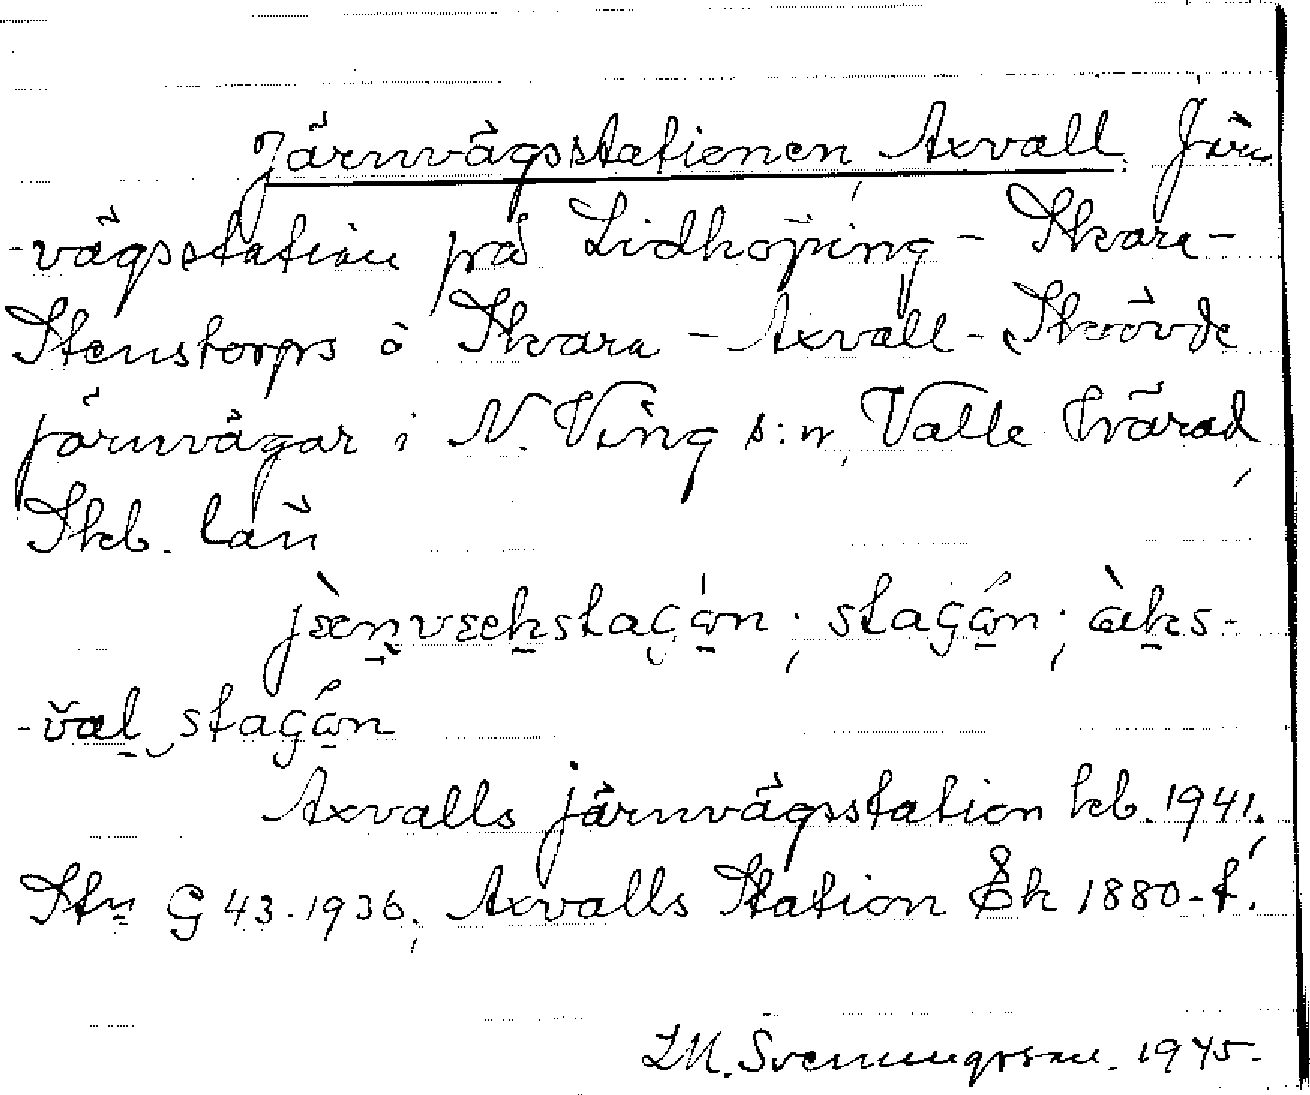 Järnvägsstationen, Axvall. Järn-
-vägsstation på Lidköping - Skara -
Stenstorps o Skara - Axvall - Skövde
järnvägar i N. Ving s:n, Valle härad,
Skb. län
jæ̀nvækstaʃɷ́n; staʃɷ́n; àks-
-val staʃɷ́n
Axvalls järnvägsstation kb. 1941;
Stn G 43. 1936; Axvalls Station Ek 1880-t.
L.M. Svenungsson. 1945.